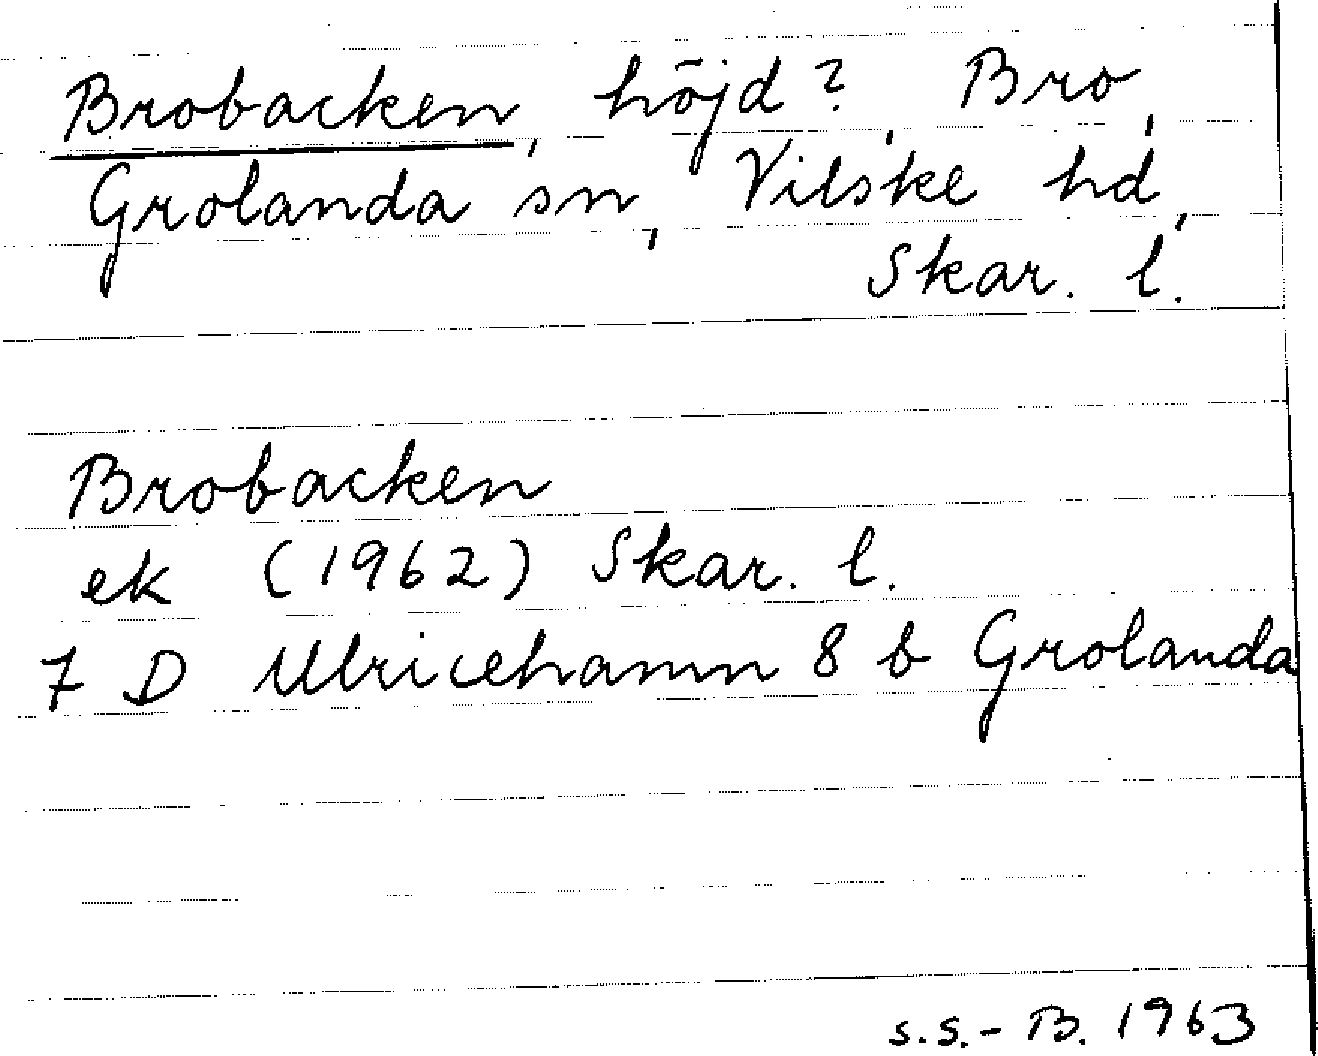 Brobacken, höjd?, Bro,
Grolanda sn, Vilske hd,
Skar. l.
Brobacken
ek (1962) Skar. l.
7 D Ulricehamn 8 b Grolanda
s.s.-B. 1963